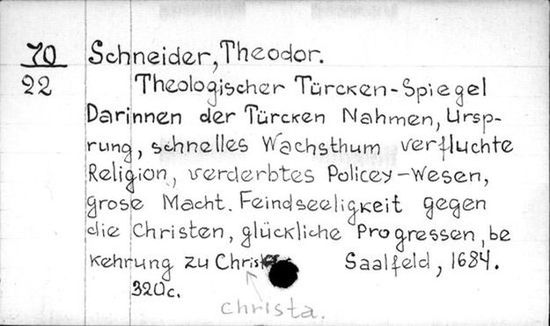 70 Schneider, Theodor.
22 Theologischer Türcken-Spiegel
Darinnen der Türcken Nahmen, Ursp-
rung, schnelles Wachsthum verfluchte
Religion, verderbtes Policey-Wesen,
grose Macht. Feindseeligkeit gegen
die Christen, glückliche Progressen, be
kehrung zu Christ Saalfeld, 1684.
320c.
christa.